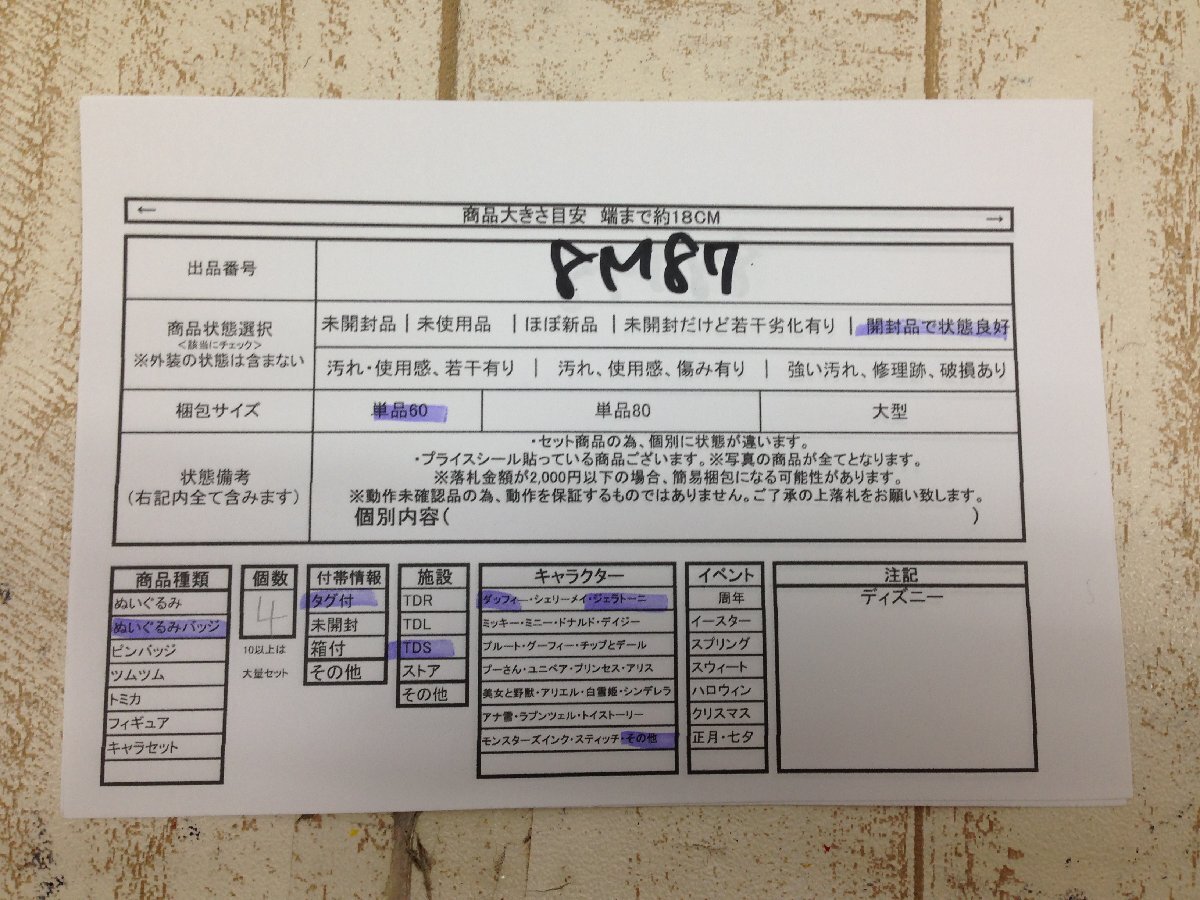 ← 商品大きさ目安 端まで約18CM →
出品番号 8M87
商品状態選択
<該当にチェック>
※外装の状態は含まない
未開封品 | 未使用品 | ほぼ新品 | 未開封だけど若干劣化有り | 開封品で状態良好
汚れ・使用感、若干有り | 汚れ、使用感、傷み有り | 強い汚れ、修理跡、破損あり
梱包サイズ 単品60 単品80 大型
状態備考
(右記内全て含みます)
・セット商品の為、個別に状態が違います。
・プライスシール貼っている商品ございます。※写真の商品が全てとなります。
※落札金額が2,000円以下の場合、簡易梱包になる可能性があります。
※動作未確認品の為、動作を保証するものではありません。ご了承の上落札をお願い致します。
個別内容( )
商品種類
ぬいぐるみ
ぬいぐるみバッジ
ピンバッジ
ツムツム
トミカ
フィギュア
キャラセット
個数
4
10以上は
大量セット
付帯情報
タグ付
未開封
箱付
その他
施設
TDR
TDL
TDS
ストア
その他
キャラクター
ダッフィー・シェリーメイ・ジェラトーニ
ミッキー・ミニー・ドナルド・デイジー
プルート・グーフィー・チップとデール
プーさん・ユニベア・プリンセス・アリス
美女と野獣・アリエル・白雪姫・シンデレラ
アナ雪・ラプンツェル・トイストーリー
モンスターズインク・スティッチ・その他
イベント
周年
イースター
スプリング
スウィート
ハロウィン
クリスマス
正月・七夕
注記
ディズニー